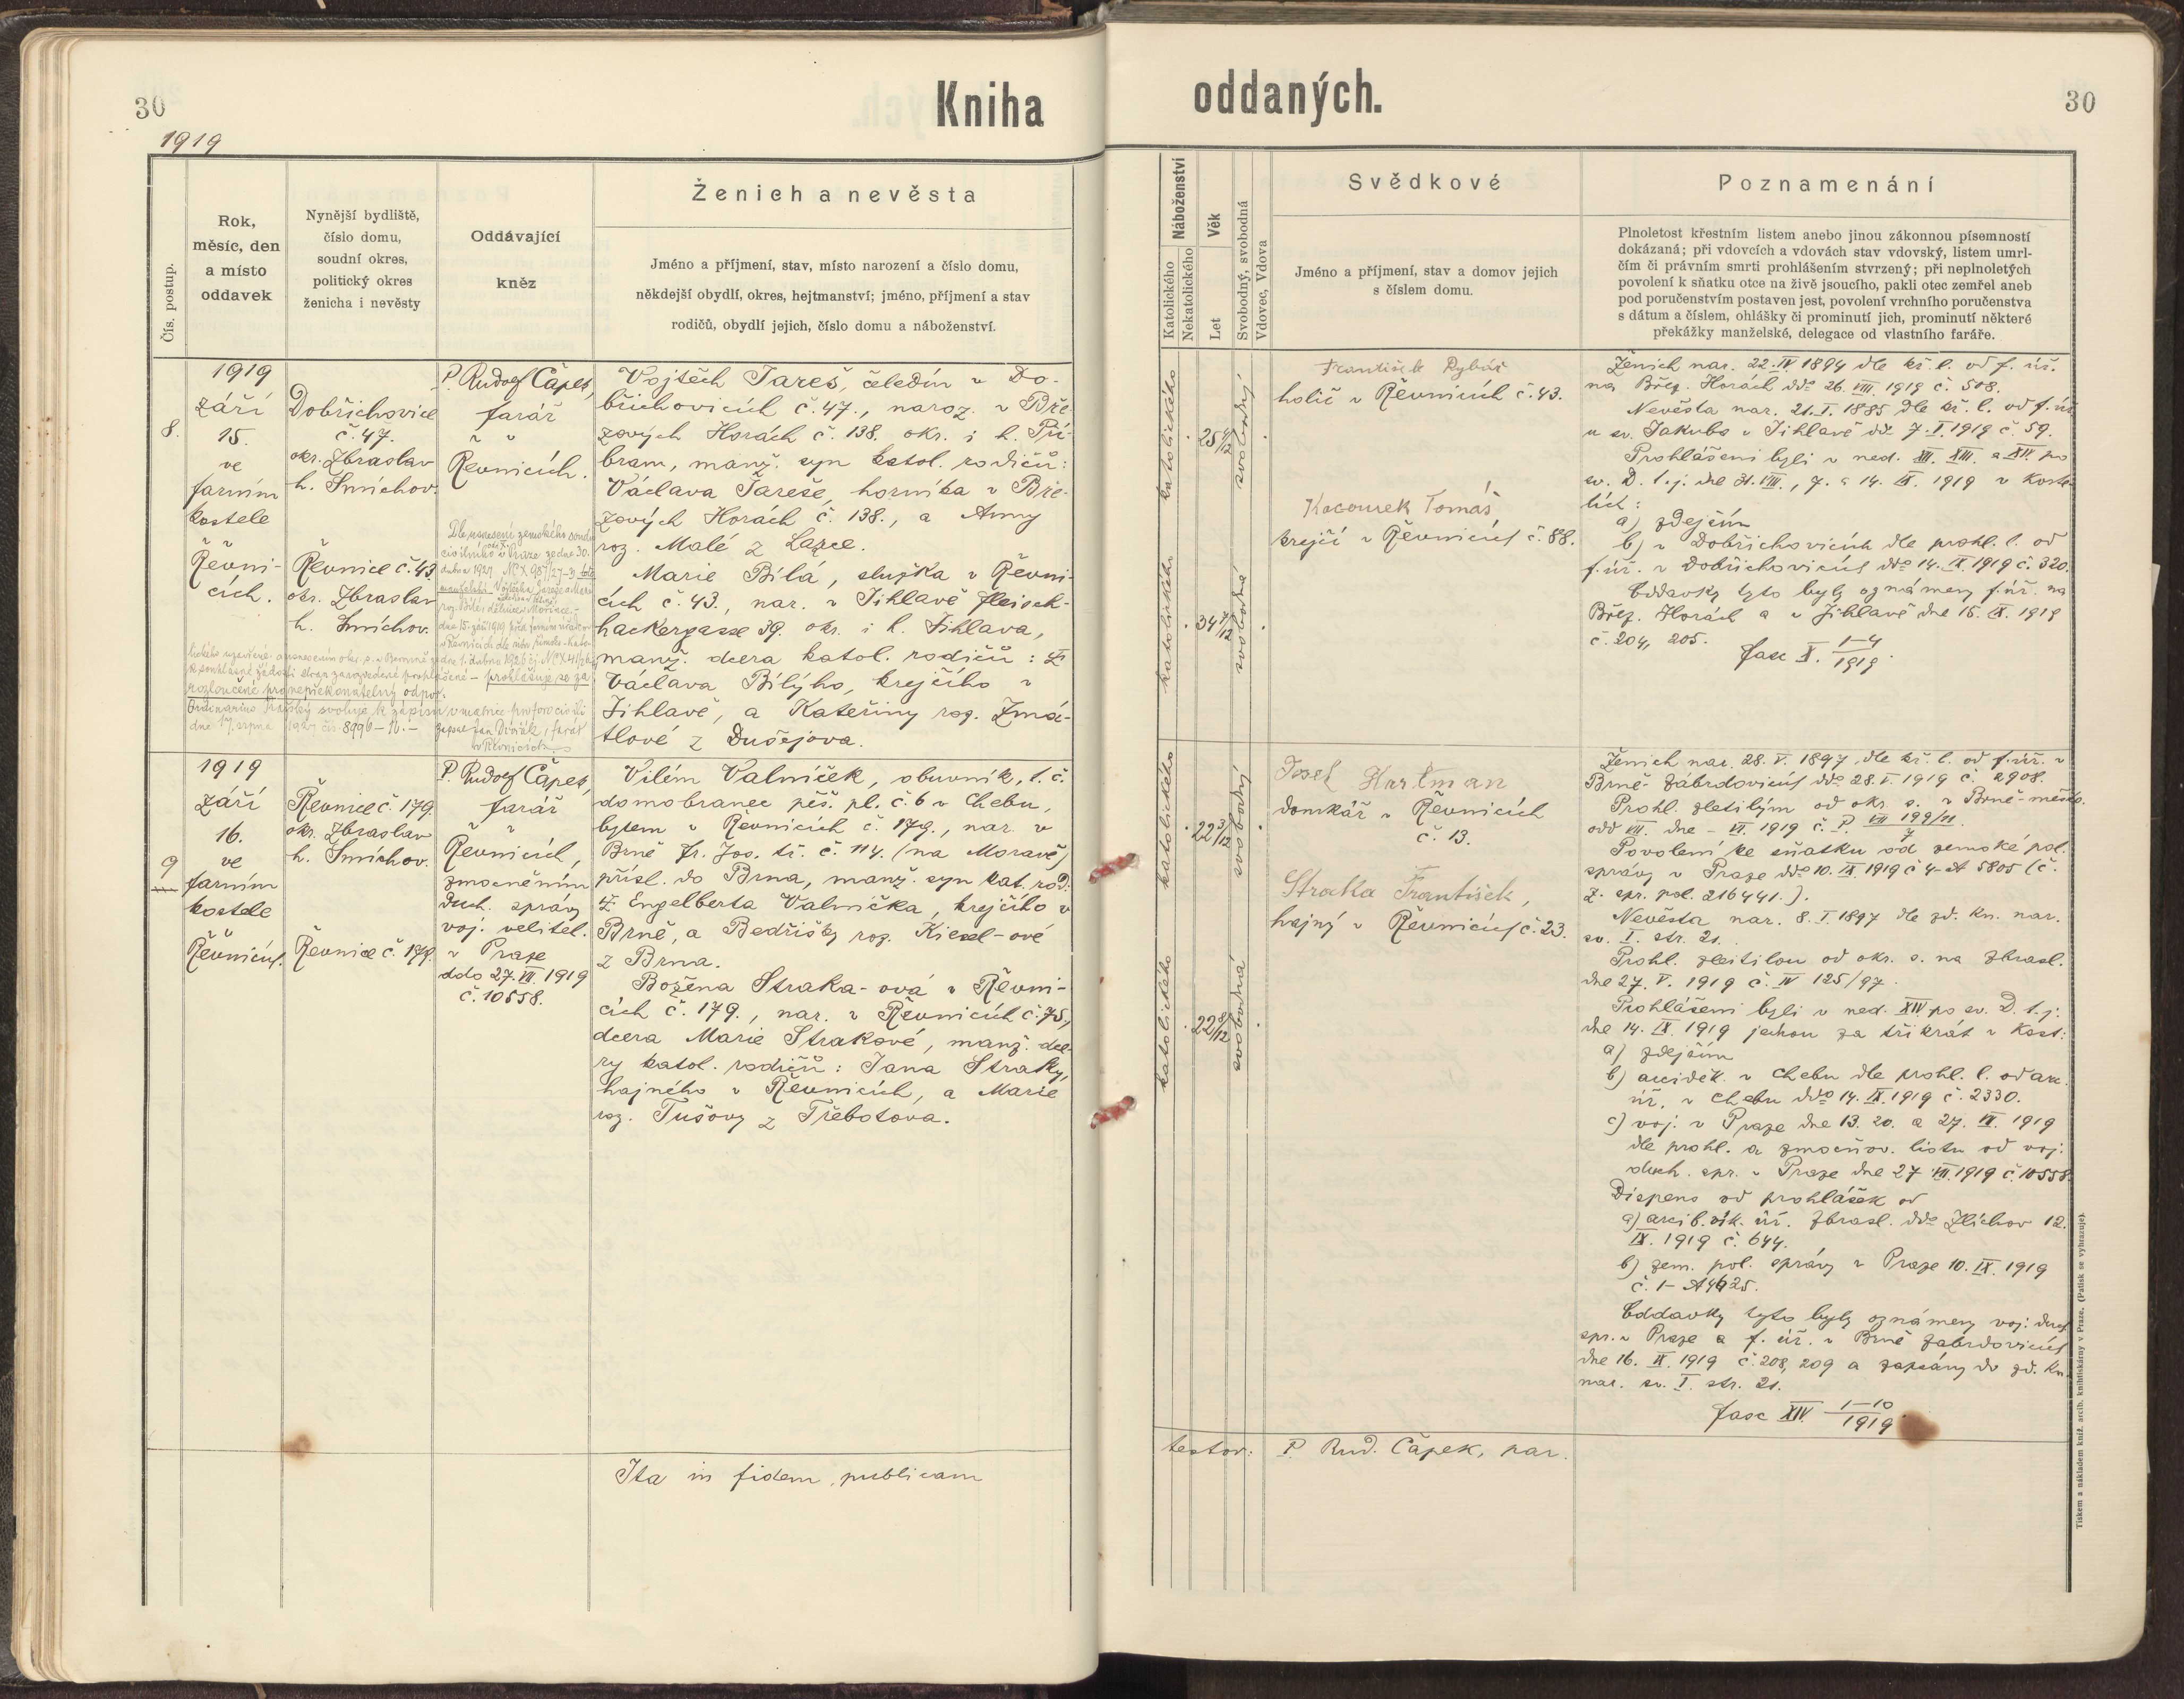 30
Kniha
1919
Čís. postup.
Rok,
měsíc, den
a místo
oddavek
Nynější bydliště,
číslo domu,
soudní okres,
politický okres
ženicha i nevěsty
Oddávající
kněz
Ženich a nevěsta
Jméno a příjmení, stav, místo narození a číslo domu,
někdejší obydlí, okres, hejtmanství; jméno, příjmení a stav
rodičů, obydlí jejich, číslo domu a náboženství.
8.
1919
září
15.
ve
farním
kostele
v
Řevni-
cích.
Dobřichovice
č. 47.
okr. Zbraslav
h. Smíchov.
Řevnice č. 43
okr. Zbraslav
h. Smíchov.
P. Rudolf Čápek,
farář
v
Řevnicích.
Dle usnesení zemského soudu
civilního v Praze ze dne 30.
dubna 1927
dne 15. září 1919 před farním úřadem
v Řevnicích
prohlašuje se za
rozloučené pro nepřekonatelný odpor.
dne 17. srpna 1927 čís. 8996
zapsal Jan Dvořák, farář
v Řevnicích
Vojtěch Tareš, čeledín v Do-
břichovicích č. 47., naroz. v Bře-
zových Horách č. 138. okr. i h. Pří-
bram, manž. syn katol. rodičů:
Václava Tareše, horníka v Bře-
zových Horách č. 138., a Anny
roz. Malé z Lazce.
Marie Bílá, služka v Řevni-
cích č. 43., nar. v Jihlavě Fleisch-
hackergasse 39. okr. i h. Jihlava,
manž. dcera katol. rodičů:
Václava Bílýho, krejčího v
Jihlavě, a Kateřiny roz. Zmá-
tlové z Dušejova.
9
1919
září
16.
ve
farním
kostele
v
Řevnicích.
Řevnice č. 179.
okr. Zbraslav
h. Smíchov.
Řevnice č. 179.
P. Rudolf Čápek,
farář
v
Řevnicích,
zmocněním
duch. správy
voj. velitel.
v Praze
ddo 27. VII. 1919
č. 10558.
Vilém Valníček, obuvník, t. č.
domobranec pěš. pl. č. 6 v Chebu,
bytem v Řevnicích č. 179., nar. v
Brně Fr. Jos. tř. č. 114. (na Moravě)
přísl. do Brna, manž. syn kat. rod:
Engelberta Valníčka, krejčího v
Brně, a Bedřišky roz. Kiesel-ové
z Brna.
Božena Straka-ová v Řevni-
cích č. 179., nar. v Řevnicích č. 75,
dcera Marie Strakové, manž. dce-
ry katol. rodičů: Jana Straky,
hajného v Řevnicích, a Marie
roz. Tušovy z Třebotova.
Ita in fidem publicam
oddaných.
30
Náboženství
Katolického
Nekatolického
Věk
Let
Svobodný, svobodná
Vdovec, Vdova
Svědkové
Jméno a příjmení, stav a domov jejich
s číslem domu.
Poznamenání
Plnoletost křestním listem anebo jinou zákonnou písemností
dokázaná; při vdovcích a vdovách stav vdovský, listem umrl-
čím či právním smrti prohlášením stvrzený; při neplnoletých
povolení k sňatku otce na živě jsoucího, pakli otec zemřel aneb
pod poručenstvím postaven jest, povolení vrchního poručenstva
s dátum a číslem, ohlášky či prominutí jich, prominutí některé
překážky manželské, delegace od vlastního faráře.
katolického
25 4/12
svobodný
katolického
34 7/12
svobodná
František Rybář
holič v Řevnicích č. 43.
Kocourek Tomáš
krejčí v Řevnicích č. 88.
Ženich nar. 22. IV 1894 dle kř. l. od f. úř.
na Břez. Horách ddo 26. VIII 1919 č. 508.
Nevěsta nar. 21. I. 1885 dle kř. l. od f. úř
u sv. Jakuba v Jihlavě dd. 7. I. 1919 č. 59.
Prohlášeni byli v ned. XII. XIII. a XIV. po
sv. D. t. j. dne 31. VIII., 7. a 14. IX. 1919 v koste-
lích:
a) zdejším
b) v Dobřichovicích dle prohl. l. od
f. úř. v Dobřichovicích ddo 14. IX. 1919 č. 320.
Oddavky tyto byly oznámeny f. úř. na
Břez. Horách a v Jihlavě dne 15. IX. 1919
č. 204, 205.
Fasc X. 1-4/1919.
katolického
22 3/12
svobodný
katolického
22 8/12
svobodná
Josef Hartman
domkář v Řevnicích
č. 13.
Straka František,
hajný v Řevnicích č. 23.
Ženich nar. 28. V. 1897, dle kř. l. od f. úř. v
Brně-Zábrdovicích ddo 28. V. 1919 č. 2908.
Prohl. zletilým od okr. s. v Brně-město.
odd VII. dne - VI. 1919 č. P. VII 199/11/7
Povolení ke sňatku od zemské pol.
správy v Praze ddo 10. IX. 1919 č 4-A 5805 (č.
z. spr. pol. 216441.).
Nevěsta nar. 8. I. 1897 dle zd. kn. nar.
sv. I. str. 21.
Prohl. zletilou od okr. s. na Zbrasl.
dne 27. V. 1919 č. IV 125/97.
Prohlášeni byli v ned. XIV po sv. D. t. j.
dne 14. IX. 1919 jednou za třikrát v kost:
a) zdejším
b) arciděk. v Chebu dle prohl. l. od arc.
úř. v Chebu ddo 14. IX. 1919 č. 2330.
c) voj. v Praze dne 13. 20. a 27. VII. 1919
dle prohl. a zmocňov. listu od voj.
duch. spr. v Praze dne 27. VII. 1919 č. 10558.
Dispens od prohlášek od
a) arcib. vik. úř. Zbrasl. ddo Zlíchov 12.
IX. 1919 č. 644.
b) zem. pol. správy v Praze 10. IX. 1919
č. 1-A4925.
Oddavky tyto byly oznámeny voj. duch
spr. v Praze a f. úř. v Brně Zábrdovicích
dne 16. IX. 1919 č. 208, 209 a zapsány do zd. kn.
nar. sv. I. str. 21.
Fasc XIV. 1-10/1919
testor: P. Rud. Čápek, par.
Tiskem a nákladem kníž. arcib. knihtiskárny v Praze. (Patisk se vyhrazuje).